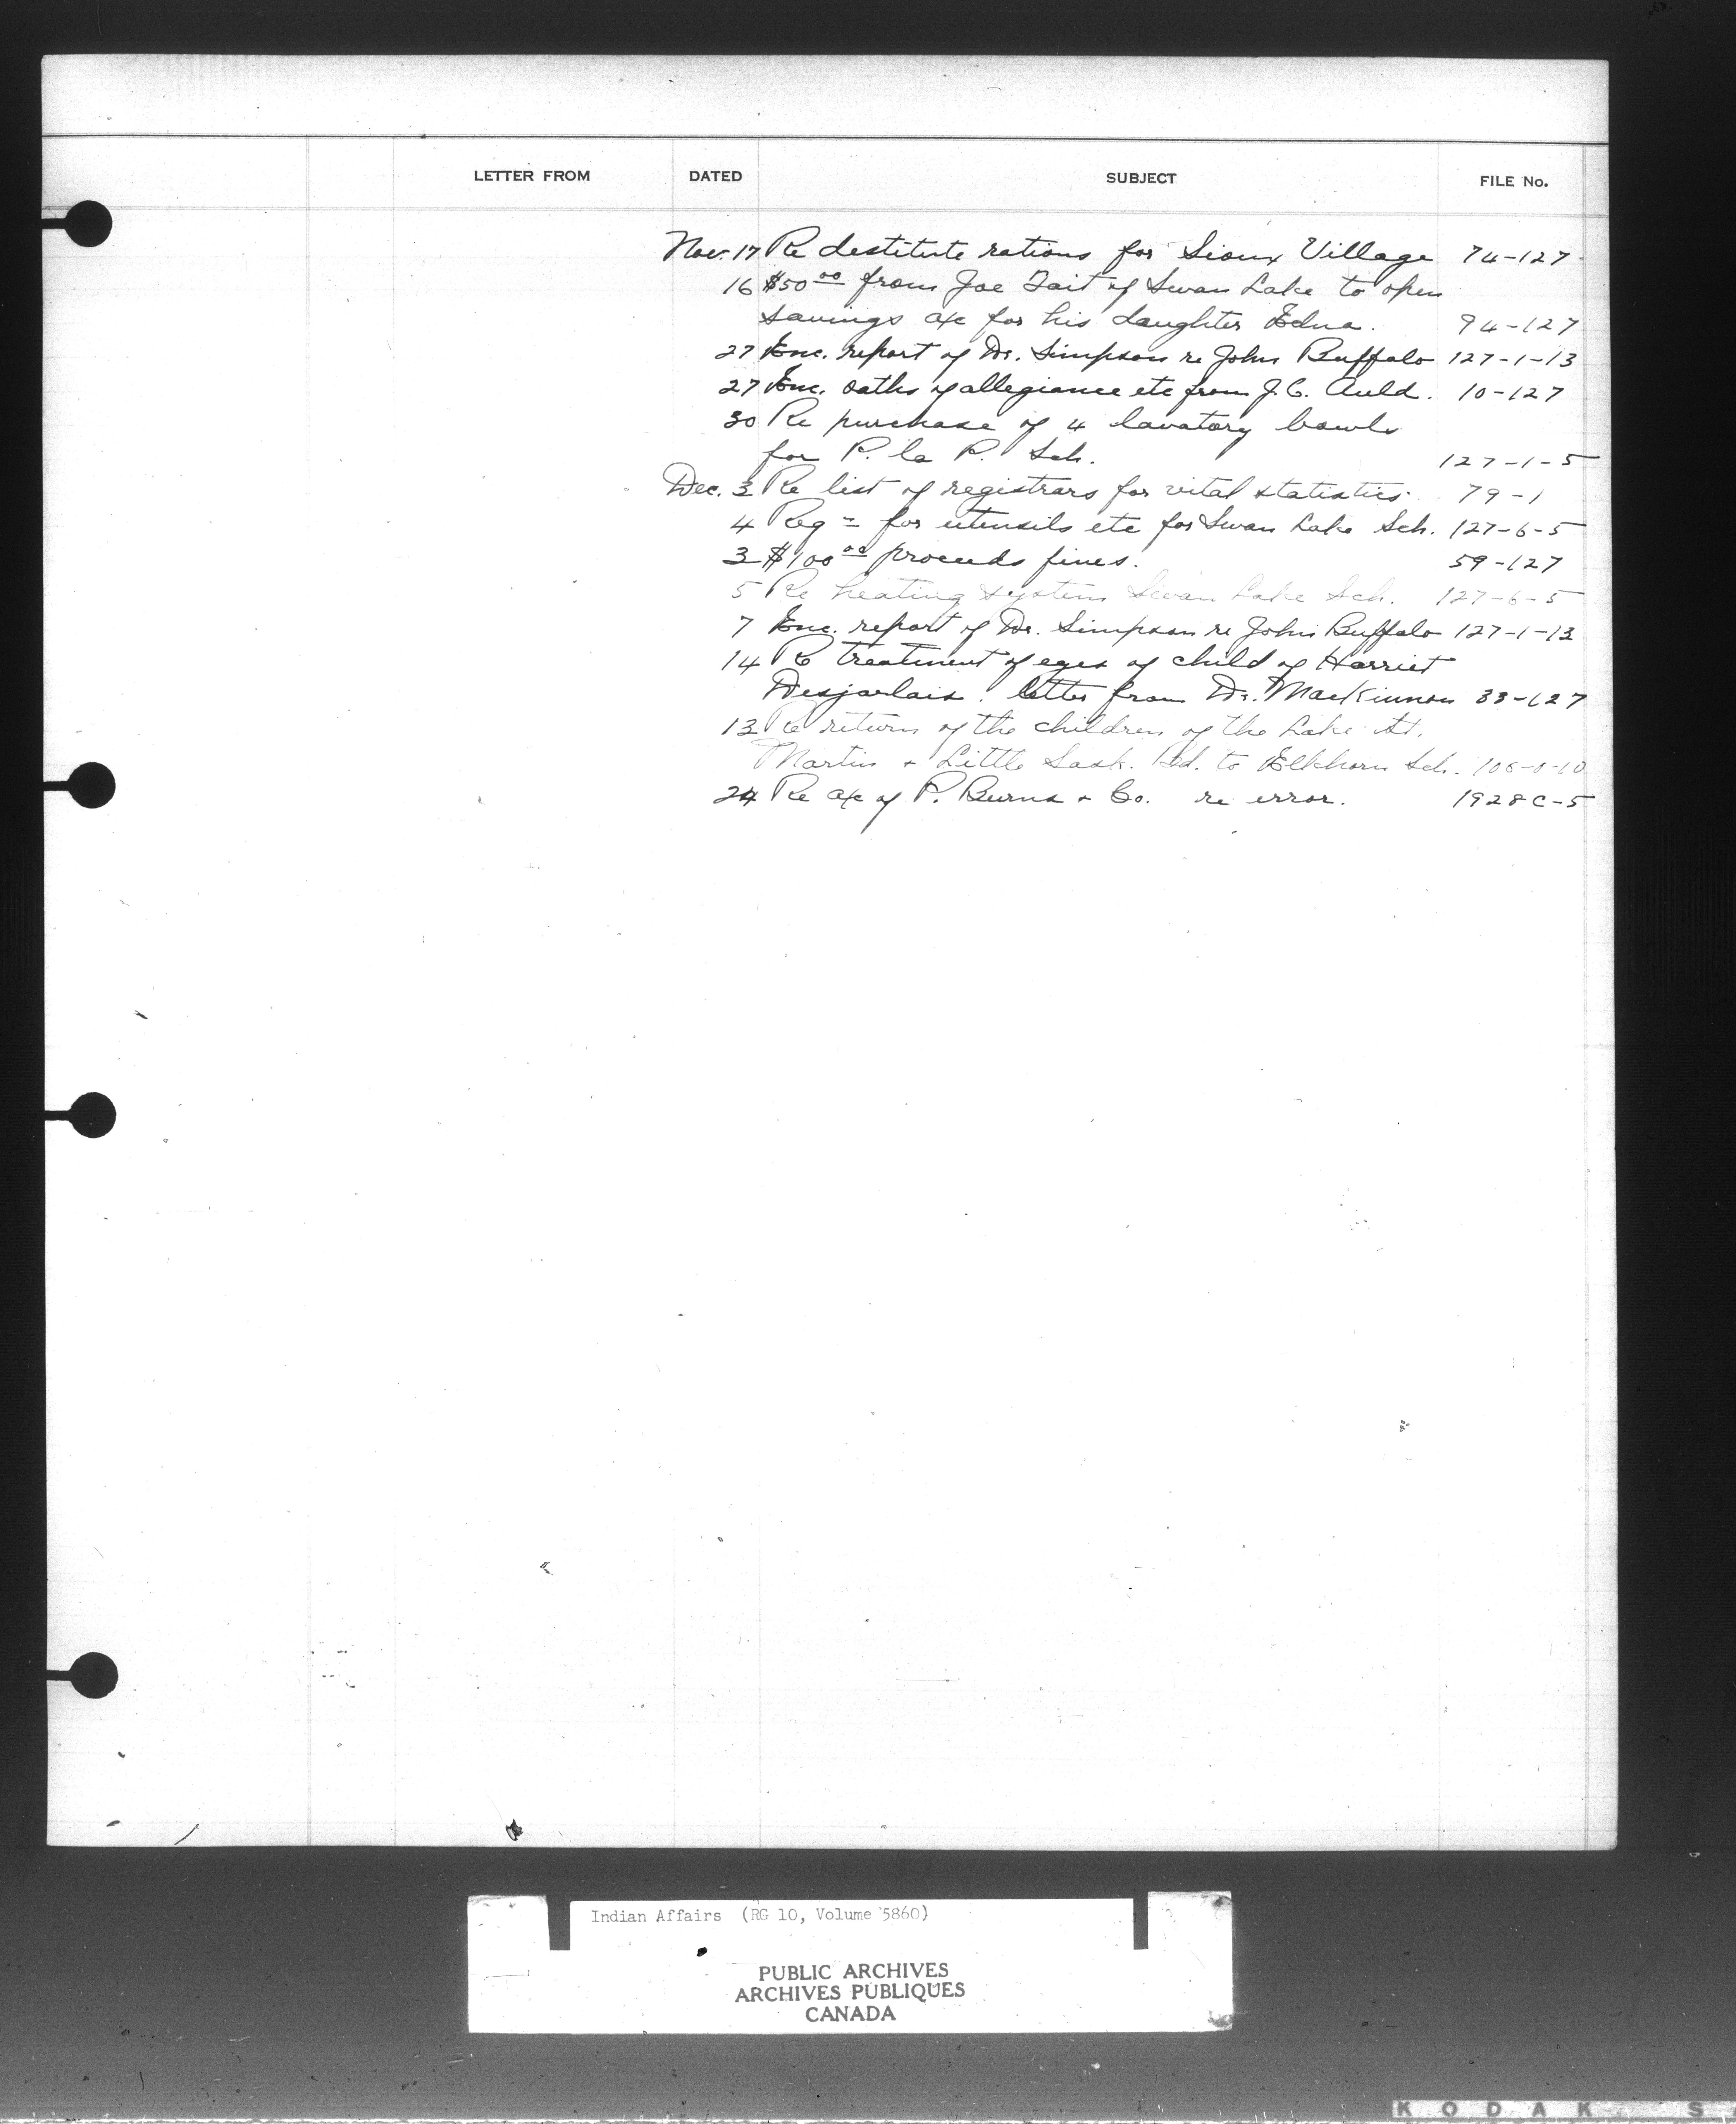 LETTER FROM DATED SUBJECT FILE No.
Nov. 17 Re destitute rations for Sioux Village 74-127
16 $50 00 from Joe Tait of Swan Lake to open
savings a/c for his daughter Edna. 94-127
27 Enc. report of Dr. Simpson re John Buffalo 127-1-13
27 Enc. oaths of allegiance etc from J.C. Auld. 10-127
30 Re purchase of 4 lavatory bowls
for P. la P. Sch. 127-1-5
Dec. 3 Re list of registrars for vital statistics. 79-1
4 Req = for utensils etc for Swan Lake Sch. 127-6-5
3 $100 00 proceeds fines. 59-127
5 Re heating system Swan Lake Sch. 127-6-5
7 Enc. report of Dr. Simpson re John Buffalo 127-1-13
14 Re treatment of eyes of child of Harriet
Desjarlais. letter from Dr. MacKinnon 33-127
13 Re return of the children of the Lake St.
Martin + Little Sask. Bd. to Elkhorn Sch.
24 Re a/c of P. Burns + Co. re error. 1928 C-5
Indian Affairs (RG 10, Volume 5860)
PUBLIC ARCHIVES
ARCHIVES PUBLIQUES
CANADA
KODAK S